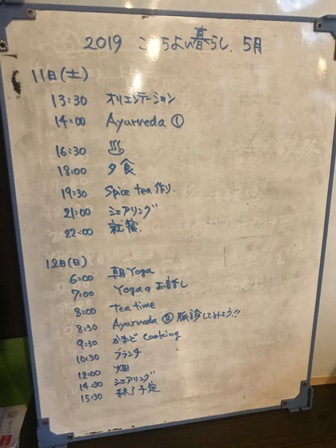 2019 こころよい暮らし. 5月
11日(土)
13:30 オリエンテーション
14:00 Ayurveda ①
16:30 ♨
18:00 夕食
19:30 Spice tea 作り.
21:00 シェアリング
22:00 就寝.
12日(日)
6:00 朝Yoga
7:00 Yogaのお話し
8:00 tea time
8:30 Ayurveda ② 脈診してみよう!!
9:30 かまど Cooking
10:30 ブランチ
12:00 畑
14:30 シェアリング
15:30 終了予定